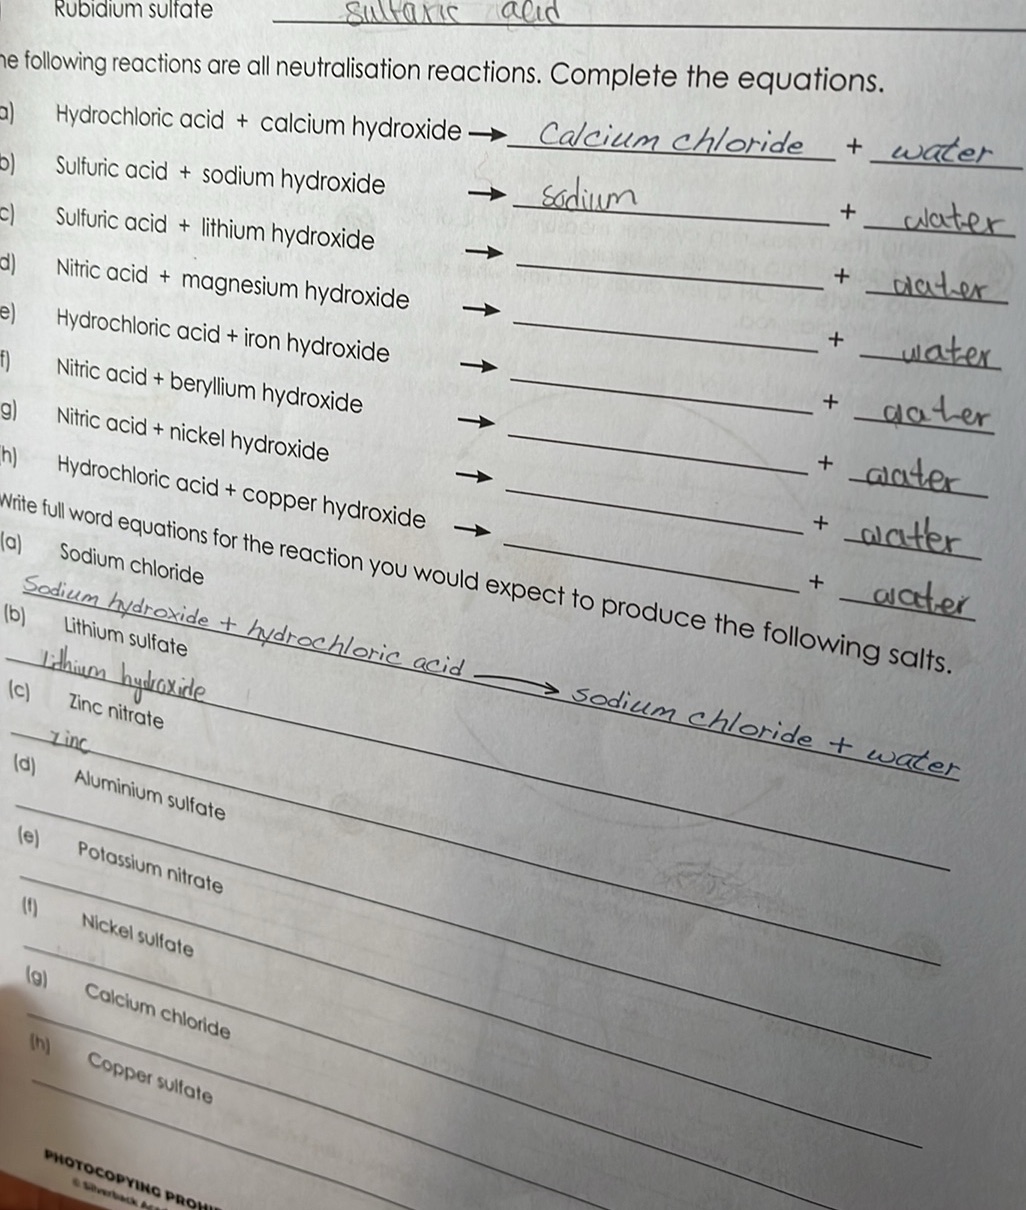 Rubidium sulfate sulfuric acid
he following reactions are all neutralisation reactions. Complete the equations.
a) Hydrochloric acid + calcium hydroxide → Calcium chloride + water
b) Sulfuric acid + sodium hydroxide → sodium + water
c) Sulfuric acid + lithium hydroxide → + water
d) Nitric acid + magnesium hydroxide → + water
e) Hydrochloric acid + iron hydroxide → + water
f) Nitric acid + beryllium hydroxide → + water
g) Nitric acid + nickel hydroxide → + water
h) Hydrochloric acid + copper hydroxide → + water
Write full word equations for the reaction you would expect to produce the following salts.
(a) Sodium chloride
Sodium hydroxide + hydrochloric acid → sodium chloride + water
(b) Lithium sulfate
lithium hydroxide
(c) Zinc nitrate
zinc
(d) Aluminium sulfate
(e) Potassium nitrate
(f) Nickel sulfate
(g) Calcium chloride
(h) Copper sulfate
PHOTOCOPYING PROHI
© Silverback